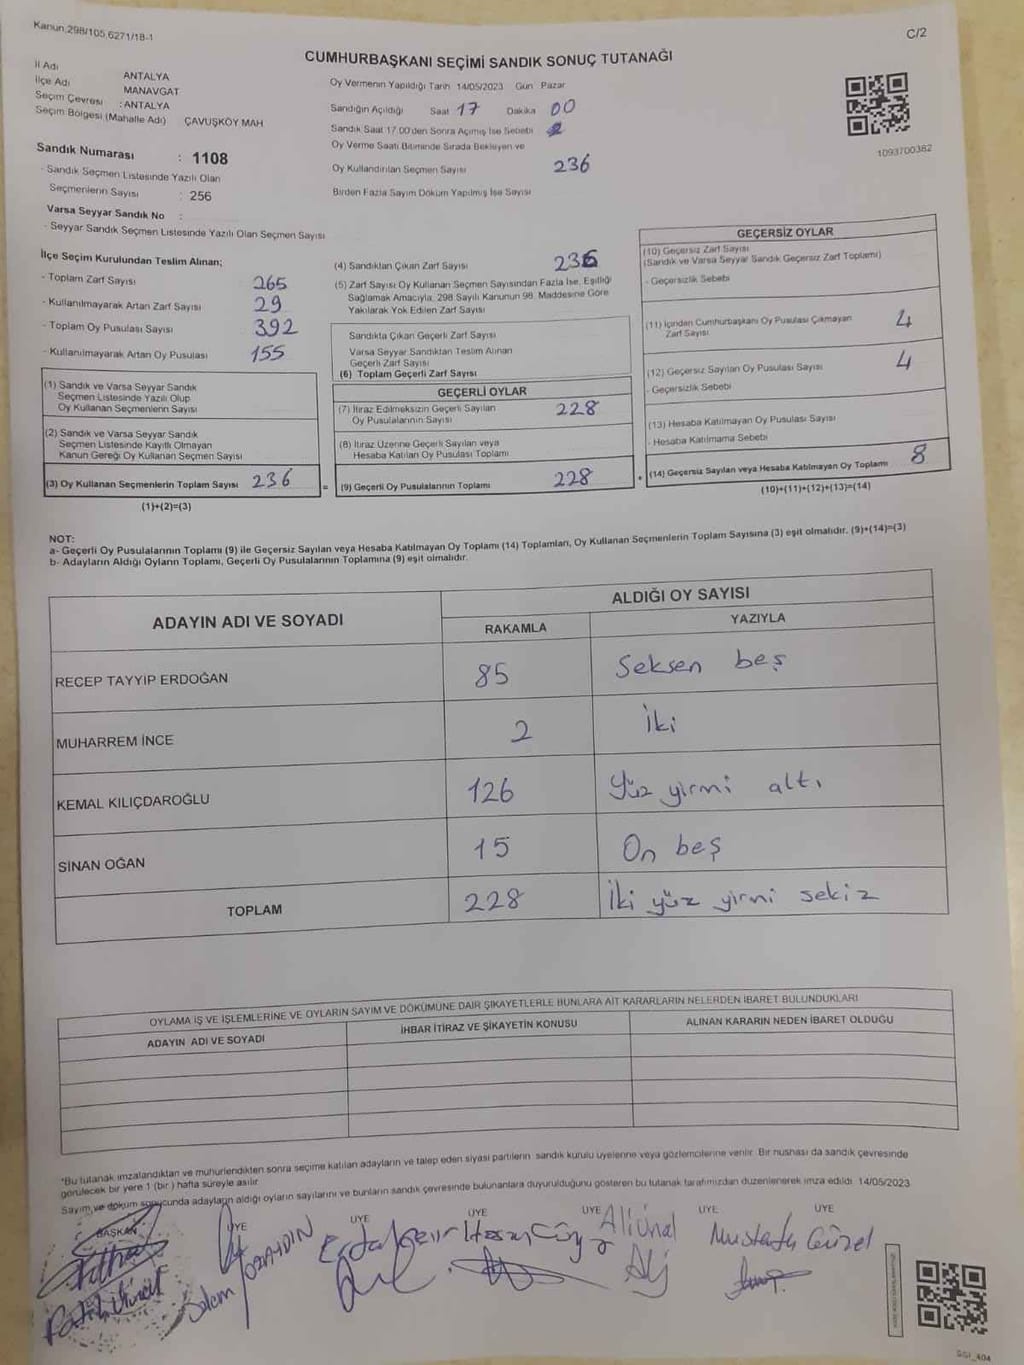 Kanun,298/105,6271/18-1
C/2
CUMHURBAŞKANI SEÇİMİ SANDIK SONUÇ TUTANAĞI
İl Adı ANTALYA
İlçe Adı MANAVGAT
Seçim Çevresi : ANTALYA
Seçim Bölgesi (Mahalle Adı) ÇAVUŞKÖY MAH
Sandık Numarası : 1108
- Sandık Seçmen Listesinde Yazılı Olan
Seçmenlerin Sayısı : 256
Varsa Seyyar Sandık No :
- Seyyar Sandık Seçmen Listesinde Yazılı Olan Seçmen Sayısı
Oy Vermenin Yapıldığı Tarih 14/05/2023 Gün Pazar
Sandığın Açıldığı Saat 17 Dakika 00
Sandık Saat 17.00'den Sonra Açılmış İse Sebebi
Oy Verme Saati Bitiminde Sırada Bekleyen ve
Oy Kullandırılan Seçmen Sayısı 236
Birden Fazla Sayım Döküm Yapılmış İse Sayısı
1093700382
İlçe Seçim Kurulundan Teslim Alınan;
- Toplam Zarf Sayısı 265
- Kullanılmayarak Artan Zarf Sayısı 29
- Toplam Oy Pusulası Sayısı 392
- Kullanılmayarak Artan Oy Pusulası 155
(1) Sandık ve Varsa Seyyar Sandık
Seçmen Listesinde Yazılı Olup
Oy Kullanan Seçmenlerin Sayısı
(2) Sandık ve Varsa Seyyar Sandık
Seçmen Listesinde Kayıtlı Olmayan
Kanun Gereği Oy Kullanan Seçmen Sayısı
(3) Oy Kullanan Seçmenlerin Toplam Sayısı 236
(1)+(2)=(3)
(4) Sandıktan Çıkan Zarf Sayısı 236
(5) Zarf Sayısı Oy Kullanan Seçmen Sayısından Fazla İse, Eşitliği
Sağlamak Amacıyla, 298 Sayılı Kanunun 98. Maddesine Göre
Yakılarak Yok Edilen Zarf Sayısı
Sandıkta Çıkan Geçerli Zarf Sayısı
Varsa Seyyar Sandıktan Teslim Alınan
Geçerli Zarf Sayısı
(6) Toplam Geçerli Zarf Sayısı
GEÇERLİ OYLAR
(7) İtiraz Edilmeksizin Geçerli Sayılan
Oy Pusulalarının Sayısı 228
(8) İtiraz Üzerine Geçerli Sayılan veya
Hesaba Katılan Oy Pusulası Toplamı
= (9) Geçerli Oy Pusulalarının Toplamı 228
GEÇERSİZ OYLAR
(10) Geçersiz Zarf Sayısı
(Sandık ve Varsa Seyyar Sandık Geçersiz Zarf Toplamı)
- Geçersizlik Sebebi
(11) İçinden Cumhurbaşkanı Oy Pusulası Çıkmayan
Zarf Sayısı 4
(12) Geçersiz Sayılan Oy Pusulası Sayısı 4
- Geçersizlik Sebebi
(13) Hesaba Katılmayan Oy Pusulası Sayısı
- Hesaba Katılmama Sebebi
+ (14) Geçersiz Sayılan veya Hesaba Katılmayan Oy Toplamı 8
(10)+(11)+(12)+(13)=(14)
NOT:
a- Geçerli Oy Pusulalarının Toplamı (9) ile Geçersiz Sayılan veya Hesaba Katılmayan Oy Toplamı (14) Toplamları, Oy Kullanan Seçmenlerin Toplam Sayısına (3) eşit olmalıdır. (9)+(14)=(3)
b- Adayların Aldığı Oyların Toplamı, Geçerli Oy Pusulalarının Toplamına (9) eşit olmalıdır.
ADAYIN ADI VE SOYADI
ALDIĞI OY SAYISI
RAKAMLA YAZIYLA
RECEP TAYYİP ERDOĞAN 85 Seksen beş
MUHARREM İNCE 2 İki
KEMAL KILIÇDAROĞLU 126 Yüz yirmi altı
SİNAN OĞAN 15 On beş
TOPLAM 228 İki yüz yirmi sekiz
OYLAMA İŞ VE İŞLEMLERİNE VE OYLARIN SAYIM VE DÖKÜMÜNE DAİR ŞİKAYETLERLE BUNLARA AİT KARARLARIN NELERDEN İBARET BULUNDUKLARI
ADAYIN ADI VE SOYADI İHBAR İTİRAZ VE ŞİKAYETİN KONUSU ALINAN KARARIN NEDEN İBARET OLDUĞU
*Bu tutanak imzalandıktan ve mühürlendikten sonra seçime katılan adayların ve talep eden siyasi partilerin sandık kurulu üyelerine veya gözlemcilerine verilir. Bir nushası da sandık çevresinde
görülecek bir yere 1 (bir ) hafta süreyle asılır.
Sayım ve döküm sonucunda adayların aldığı oyların sayılarını ve bunların sandık çevresinde bulunanlara duyurulduğunu gösteren bu tutanak tarafımızdan düzenlenerek imza edildi. 14/05/2023
BAŞKAN ÜYE ÜYE ÜYE ÜYE ÜYE ÜYE
ÖZAYDIN Ali Ünal Mustafa Güzel